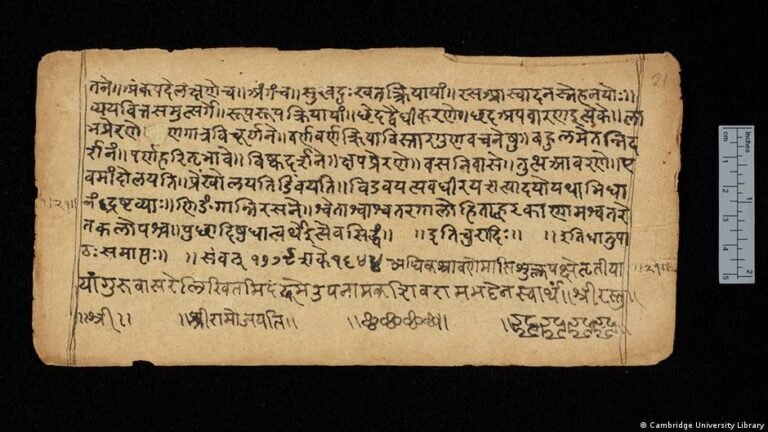 21
तने॥अंकपदेलक्षणेच॥अंगच॥सुखदुःखतत्क्रियायां॥रसआस्वादनस्नेहनयोः॥
व्ययवित्तसमुत्सर्गे॥रूपरूपक्रियायां॥छेदद्वैधीकरणे॥छदअपवारणइत्येके॥ला
भप्रेरणे॥ व्रणगात्रविचूर्णने॥वर्णवर्णक्रियाविस्तारगुणवचनेषु॥बहुलमेतन्निद
र्शनं॥पर्णहरितभावे॥विष्कदर्शने॥क्षपप्रेरणे॥वसनिवासे॥तुत्थआवरणे॥ए
वमांदोलयति॥प्रेंखोलयतिडिंबयति॥विडंबयत्यवधीरयत्यादयोयथाभिधा
नंद्रष्टव्याः॥णिङंगान्निरसने॥श्वेताश्वाश्वतरगालोडिताह्वरकाणामश्वतरे
तकलोपश्च॥पुच्छादिषुधात्वर्थेइत्येवसिद्धं॥ ॥इतिचुरादिः॥ ॥इतिधातुपा
ठःसमाप्तः॥ ॥संवत् १७७९शके१६४४ अधिकश्रावणेमासिशुक्लपक्षेतृतीया
यांगुरुवासरेलिखितमिदं शिवरामभट्टेनस्वार्थं॥श्रीरस्तु॥
॥श्री॥ ॥श्रीरामोजयति॥
॥२१॥
॥२१॥
cm
Inches
© Cambridge University Library